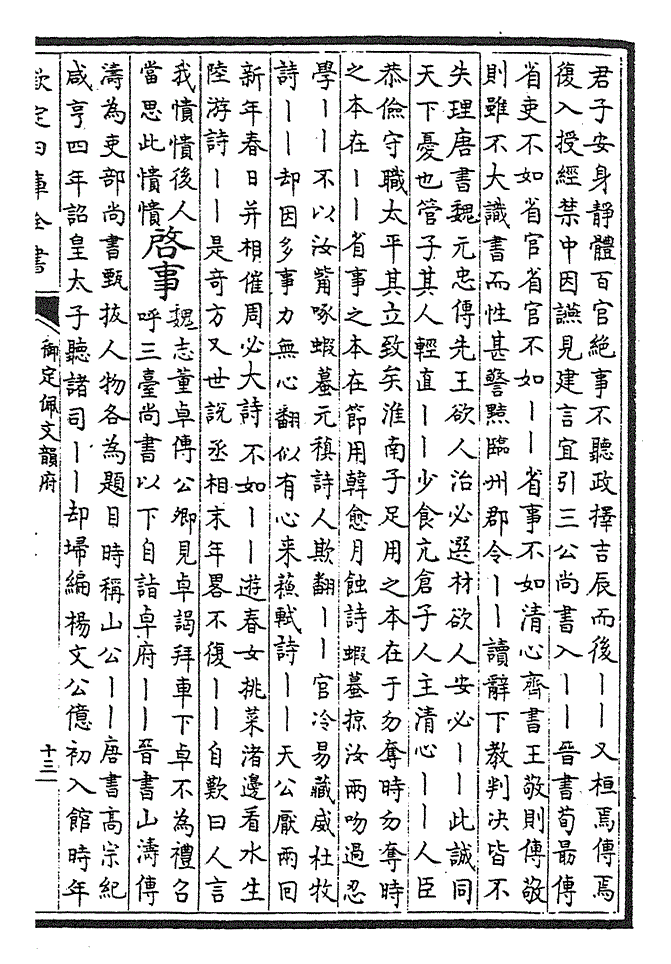 君子安身静體百官絶事不聽政擇吉辰而後丨丨又桓焉傳焉
復入授經禁中因讌見建言宜引三公尚書入丨丨晉書荀朂傳
省吏不如省官省官不如丨丨省事不如清心齊書王敬則傳敬
則雖不大識書而性甚警黠臨州郡令丨丨讀辭下教判决皆不
失理唐書魏元忠傳先王欲人治必選材欲人安必丨丨此誠同
天下憂也管子其人輕直丨丨少食亢倉子人主清心丨丨人臣
恭儉守職太平其立致矣淮南子足用之本在于勿奪時勿奪時
之本在丨丨省事之本在節用韓愈月蝕詩蝦蟇掠汝兩吻過忍
學丨丨不以汝觜啄蝦蟇元稹詩人欺翻丨丨官冷易藏威杜牧
詩丨丨却因多事力無心翻似有心来蘓軾詩丨丨天公厭兩回
新年春日并相催周必大詩不如丨丨遊春女挑菜渚邊看水生
陸游詩丨丨是竒方又世說丞相末年畧不復丨丨自歎曰人言
我憒憒後人
當思此憒憒
啓事
魏志董卓傳公卿見卓謁拜車下卓不為禮召
呼三臺尚書以下自詣卓府丨丨晉書山濤傳
濤為吏部尚書甄拔人物各為題目時稱山公丨丨唐書高宗紀
咸亨四年詔皇太子聽諸司丨丨却埽編楊文公億初入館時年
欽定四庫全書
御定佩文韻府
十三